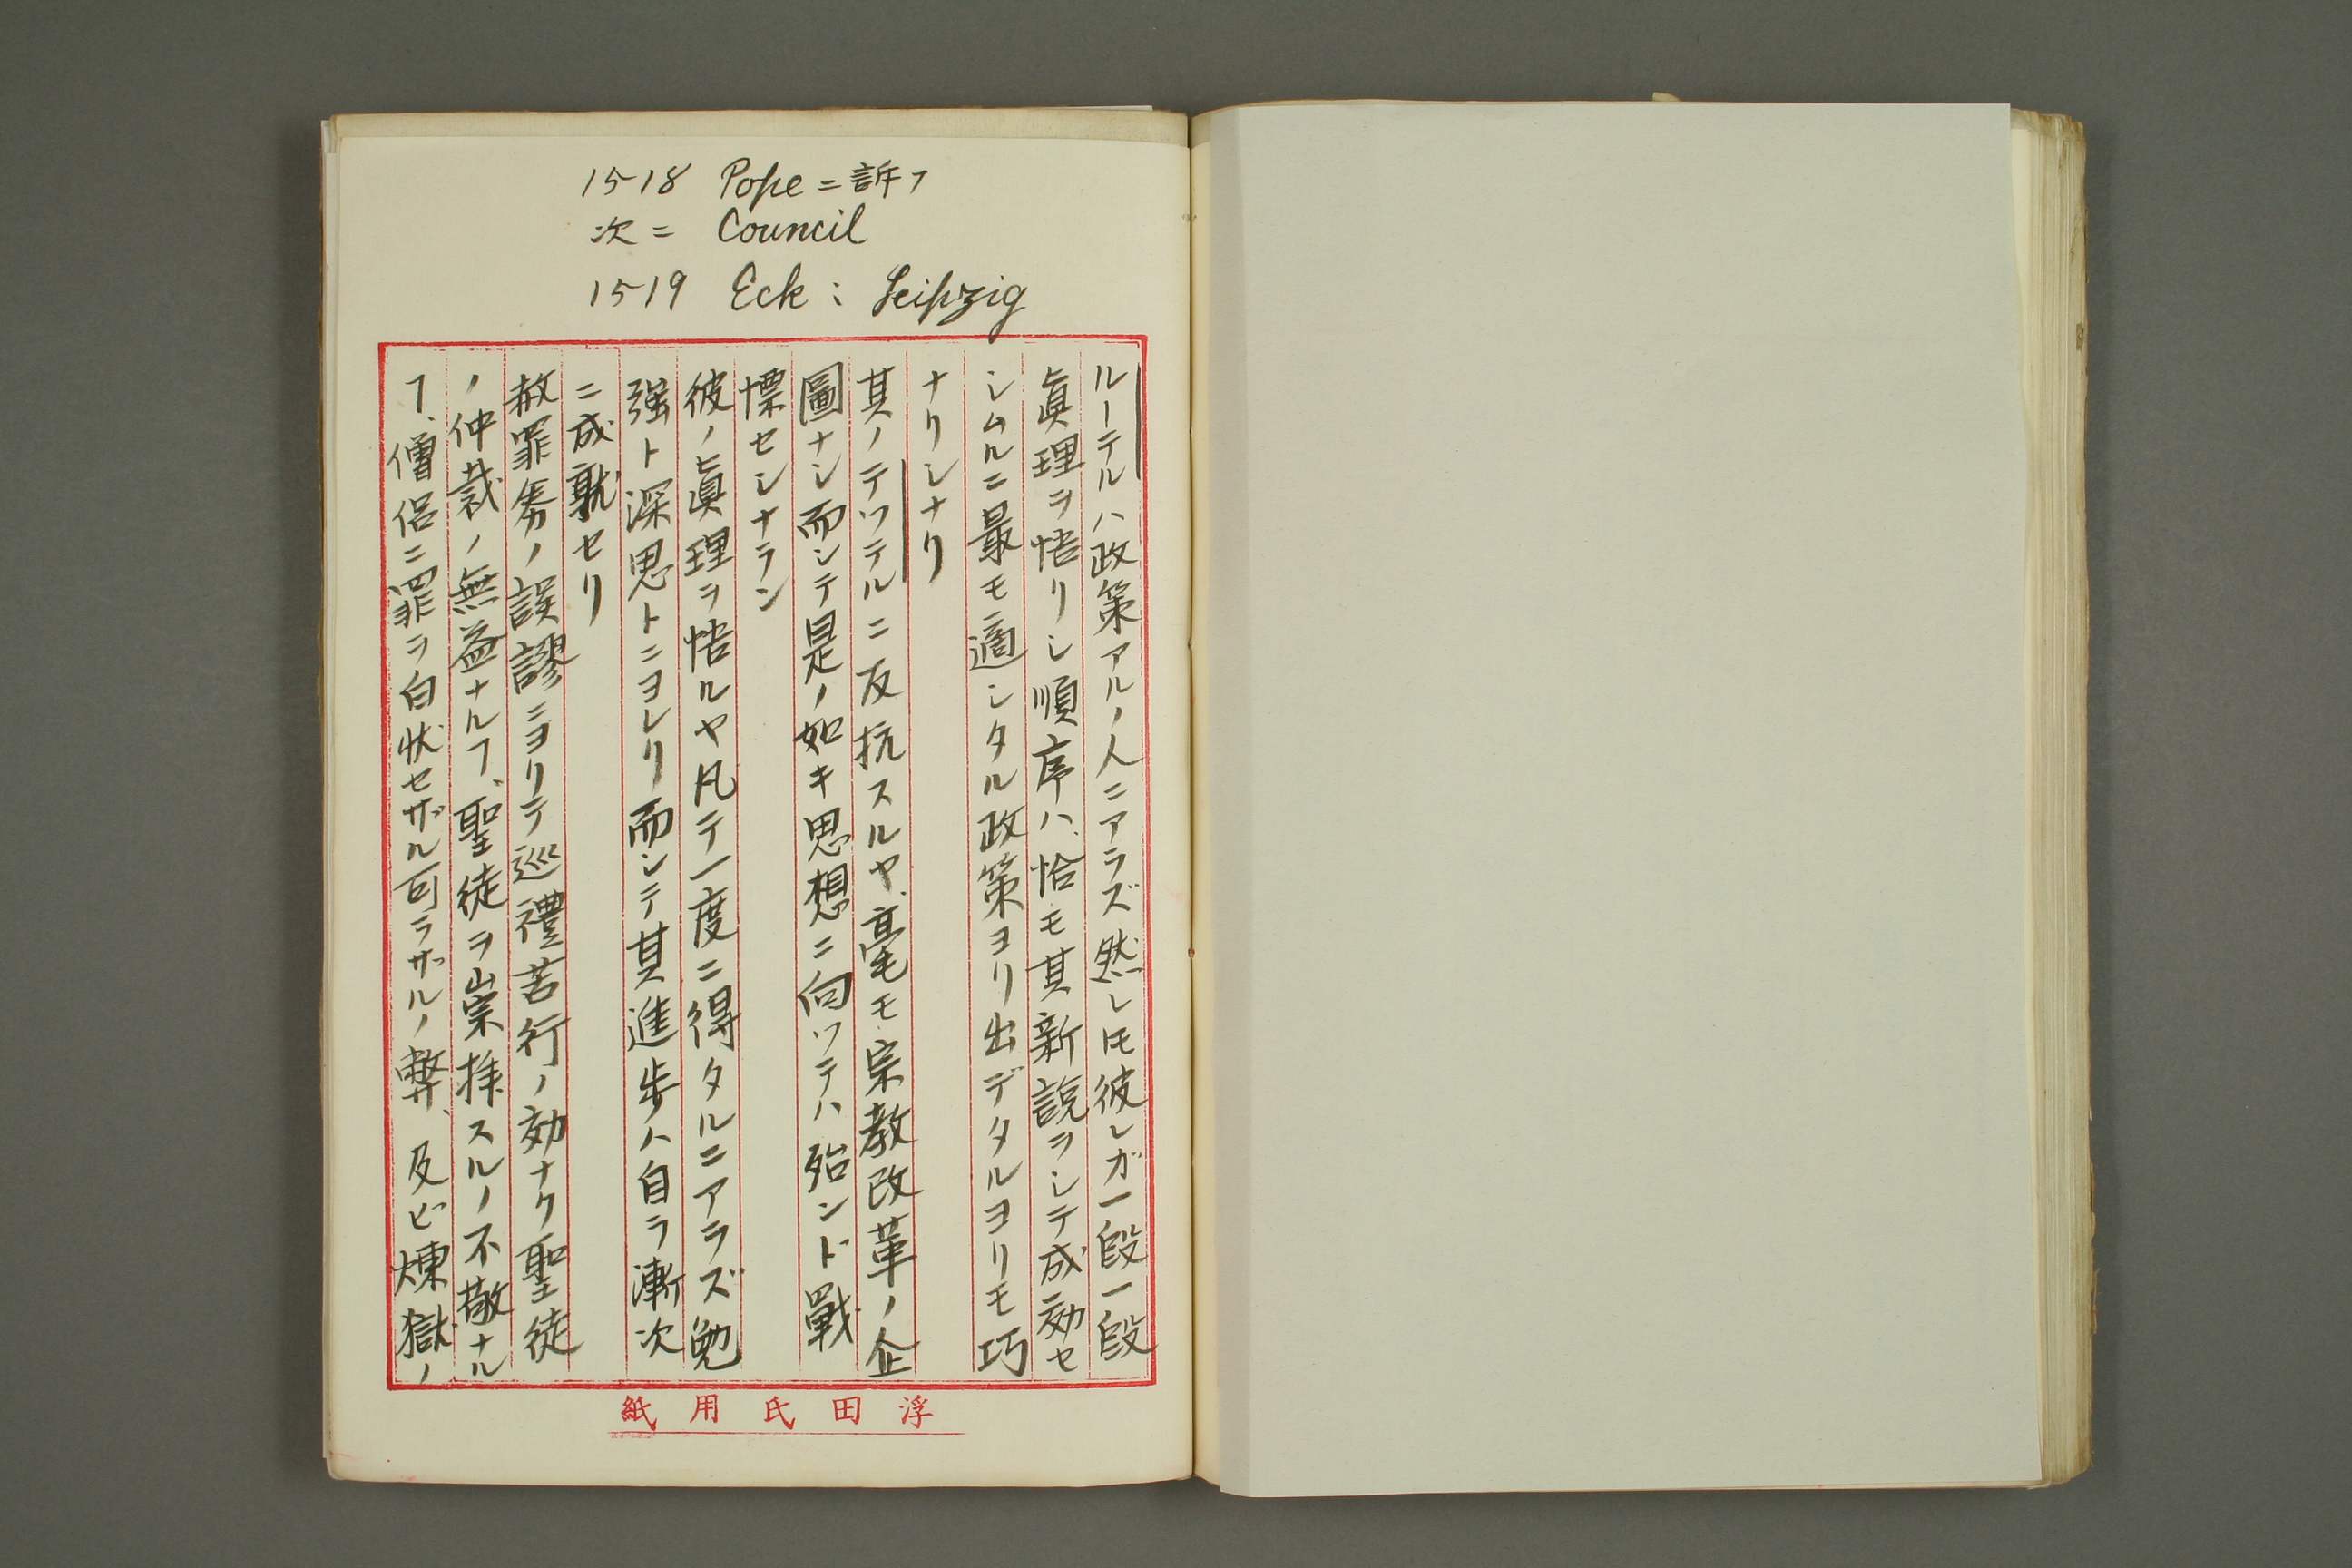 1518 Pope ニ訴フ
次ニ Council
1519 Eck : Leipzig
ルーテルハ政策アルノ人ニアラズ然レㇳモ彼レガ一段一段
眞理ヲ悟リシ順序ハ、恰モ其新説ヲシテ成効セ
シムルニ最モ適シタル政策ヨリ出デタルヨリモ巧
ナリシナリ
其ノテツテルニ反抗スルヤ、毫モ宗教改革ノ企
圖ナシ而シテ是ノ如キ思想ニ向ツテハ殆ンド戰
慄セシナラン
彼ノ眞理ヲ悟ルヤ凡テ一度ニ得タルニアラズ勉
強ト深思トニヨレリ而シテ其進歩ハ自ラ漸次
ニ成就セリ
赦罪券ノ誤謬ニヨリテ巡禮苦行ノ効ナク聖徒
ノ仲裁ノ無益ナルヿ、聖徒ヲ崇拝スルノ不敬ナル
ヿ、僧侶ニ罪ヲ白状セザル可ラザルノ弊、及ビ煉獄ノ
浮田氏用紙